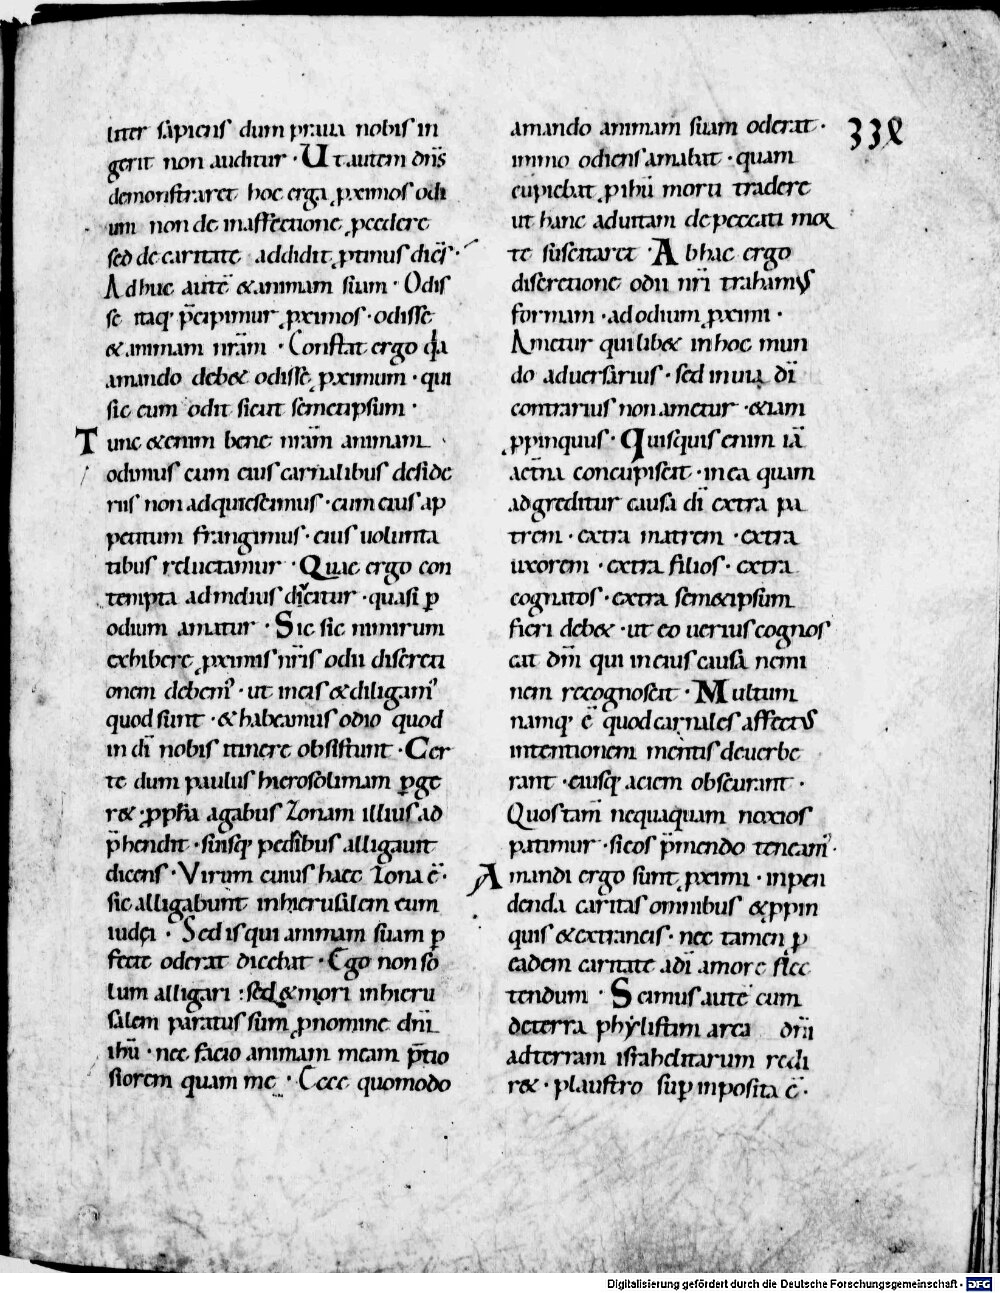 liter sapiens dum praua nobis in
gerit non auditur · Ut autem dn̄s
demonstraret hoc erga ꝓximos odi
um non de inaffectione ꝓcedere
sed de caritate addidit ꝓtinus dicēs ·
Adhuc autē &animam suam · Odis
se itaq· p̄cipimur ꝓximos · odisse
&animam nr̄am · Constat ergo qđa
amando deb& odisse ꝓximum · qui
sic eum odit sicut semetipsum ·
Tunc &enim bene nr̄am animam
odimus cum eius carnalibus deside
riis non adquiescimus · cum eius ap
petitum frangimus · eius uolunta
tibus reluctamur · Quae ergo con
tempta ad melius ducitur · quasi ꝑ
odium amatur · Sic sic nimirum
exhibere ꝓximis nr̄is odii discreti
onem debem᾽ · ut in eis &diligam᾽
quod sunt · &habeamus odio quod
in dī nobis itinere obsistunt · Cer
te dum paulus hierosolimam ꝑge
r& · ꝓph̄a agabus Zonam illius ad
p̄hendit · suisq· pedibus alligauit
dicens · Virum cuius haec Zona ē ·
sic alligabunt in hierusalem eum
iudęi · Sed is qui animam suam ꝑ
fecte oderat dicebat · Ego non so
lum alligari : sed &mori in hieru
salem paratus sum ꝓ nomine dn̄i
ihū · nec facio animam meam p̄tio
siorem quam me · Ecce quomodo
amando animam suam oderat ·
immo odiens amabat · quam
cupiebat ꝓ ihū morti tradere
ut hanc ad uitam de peccati mor
te suscitaret Ab hac ergo
discretione odii nr̄i trahamus
formam · ad odium ꝓximi ·
Ametur quilib& in hoc mun
do aduersarius · sed in uia dī
contrarius non ametur · &iam
ꝓpinquus · Quisquis enim iā
aet̄na concupiscit · in ea quam
adgreditur causa dī extra pa
trem · extra matrem · extra
uxorem · extra filios · extra
cognatos · extra sem&ipsum
fieri deb& · ut eo uerius cognos
cat dm̄ qui in eius causa nemi
nem recognoscit · Multum
namq· ē quod carnales affectus
intentionem mentis deuerbe
rant · eiusq· aciem obscurant ·
Quos tam̄ nequaquam noxios
patimur · si eos p̄mendo teneam᾽ ·
Amandi ergo sunt ꝓximi · inpen
denda caritas omnibus &ꝓpin
quis &extraneis · nec tamen ꝓ
eadem caritate a dī amore flec
tendum · Scimus autē cum
de terra phylistim arca dn̄i
ad terram israhelitarum redi
r& · plaustro suꝑ inposita ē ·
338
Digitalisierung gefördert durch die Deutsche Forschungsgemeinschaft - DFG